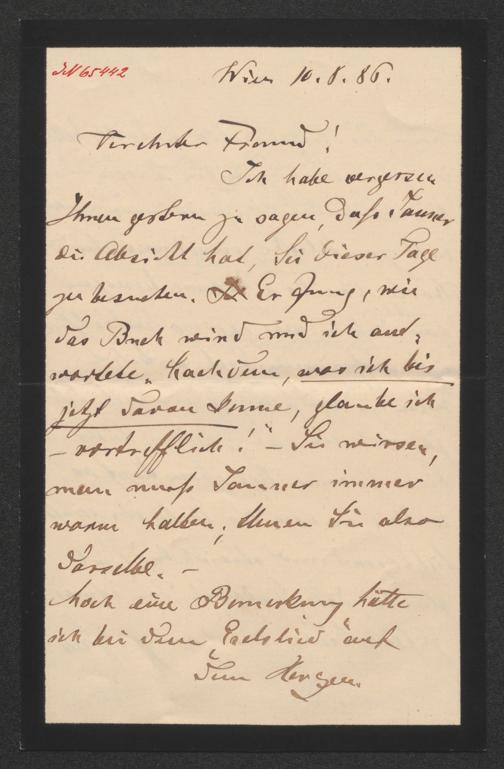 JN 65442
Wien 10. 8. 86.
Verehrter Freund!
Ich habe vergessen
Ihnen gestern zu sagen, daß Tauner
die Absicht hat, Sie dieser Tage
zu besuchen. Er frug, wie
das Buch wird und ich ant-
wortete „Nachdem, was ich bis
jetzt davon kenne, glaube ich
– vortrefflich!“ – Sie wissen,
man muß Tauner immer
warm halten; thuen Sie also
dasselbe. –
Noch eine Bemerkung hätte
ich bei dem auf
dem Herzen.